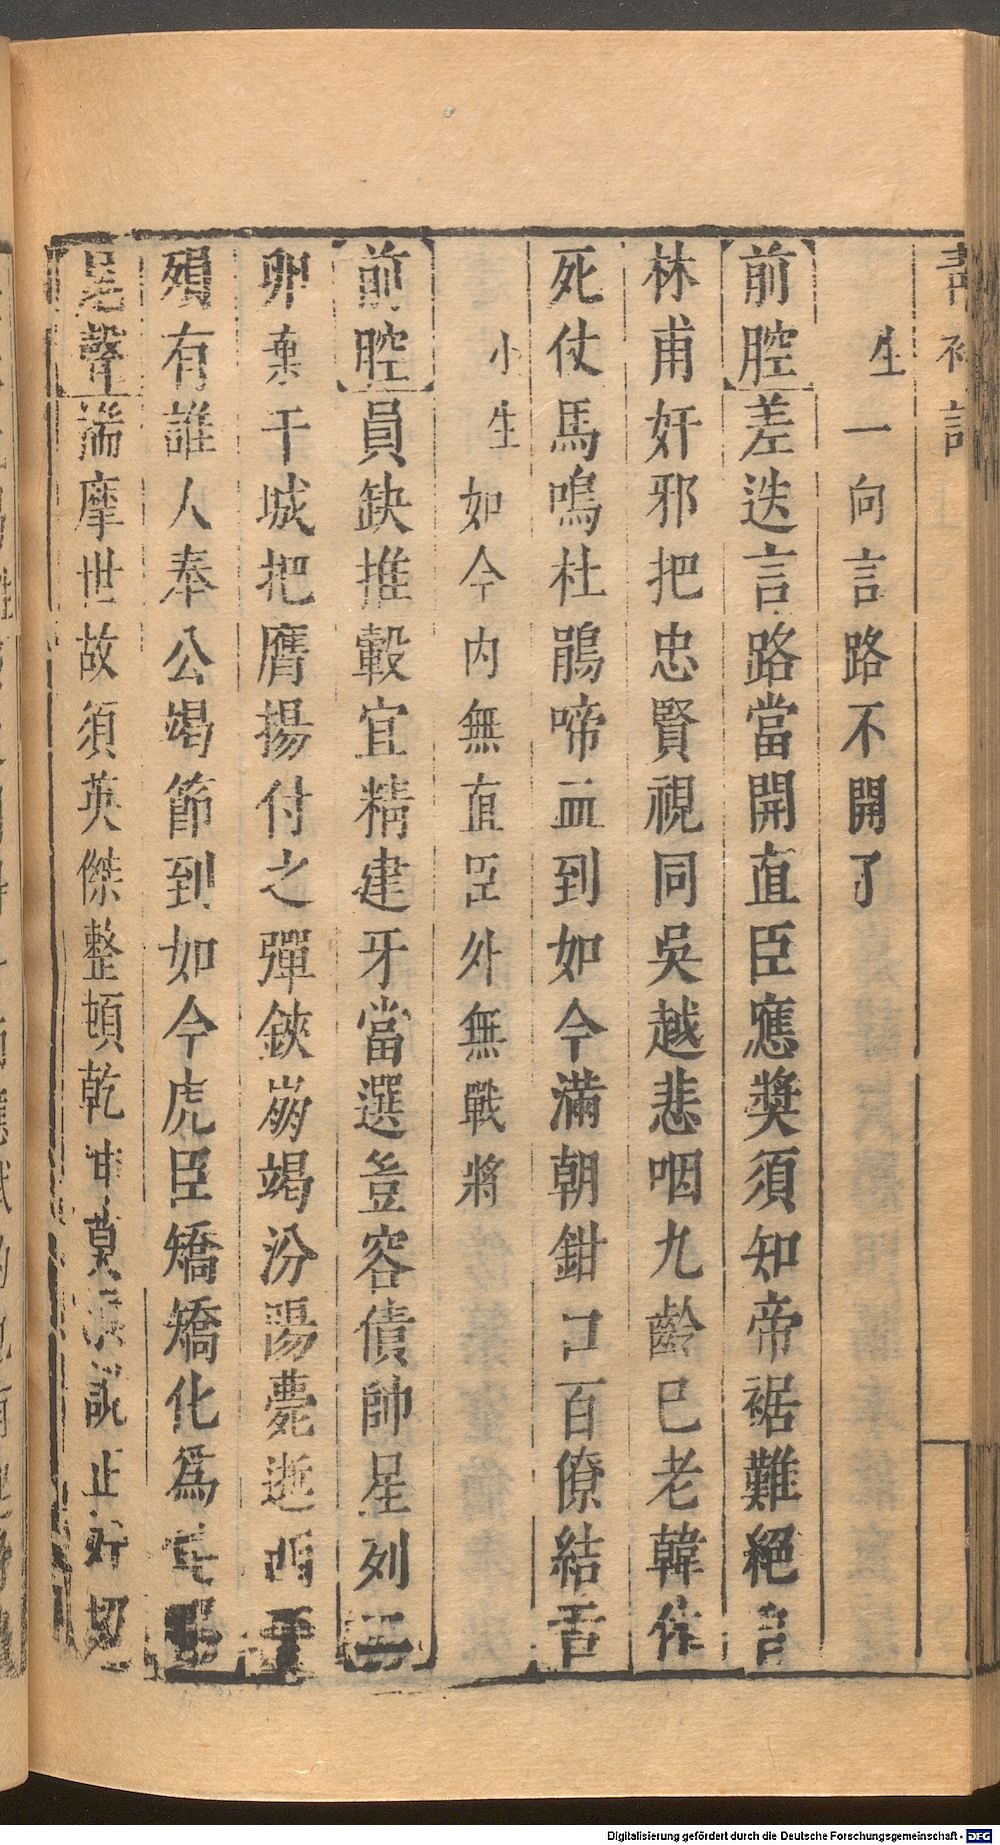 畫衣記
生一向言路不開了
前腔差迭言路當開直臣應奬須知帝裾難絕
林甫奸邪把忠賢視同吳越悲咽九齡已老韓休
死仗馬鳴杜鵑啼血到如今滿朝鉗口百僚結舌
小生如今內無直臣外無戰將
前腔員缺推轂宜精建牙當選豈容債帥星列二
卵棄干城把膺揚付之彈鋏崩竭汾陽薨逝西
殞有誰人奉公竭節到如今虎臣矯矯化爲
尾聲揣摩世故須英傑整頓乾坤莫浪說止
Digitalisierung gefördert durch die Deutsche Forschungsgemeinschaft - DFG